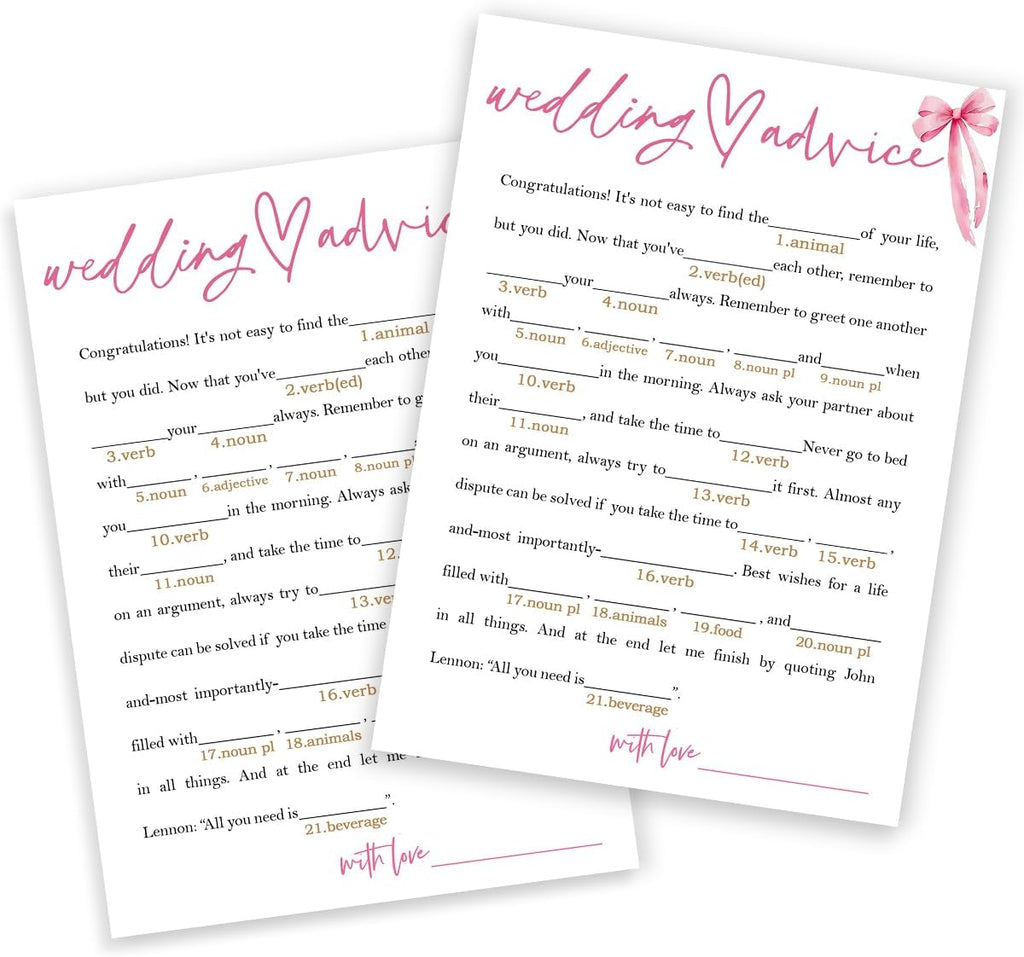 wedding advic
Congratulations! It's not easy to find the__________
1.animal
but you did. Now that you've__________each other
2.verb(ed)
__________your__________always. Remember to g
3.verb 4.noun
with________, ________, ________, ________,
5.noun 6.adjective 7.noun 8.noun pl
you____________in the morning. Always ask
10.verb
their__________, and take the time to______
11.noun 12.
on an argument, always try to__________
13.ve
dispute can be solved if you take the time
and-most importantly-______________
16.verb
filled with__________, __________,
17.noun pl 18.animals
in all things. And at the end let me
Lennon: “All you need is__________”.
21.beverage
with love____________________
wedding advice
Congratulations! It's not easy to find the__________of your life,
1.animal
but you did. Now that you've__________each other, remember to
2.verb(ed)
__________your__________always. Remember to greet one another
3.verb 4.noun
with________, ________, ________, ________and________when
5.noun 6.adjective 7.noun 8.noun pl 9.noun pl
you____________in the morning. Always ask your partner about
10.verb
their__________, and take the time to__________Never go to bed
11.noun 12.verb
on an argument, always try to____________it first. Almost any
13.verb
dispute can be solved if you take the time to________, ________,
14.verb 15.verb
and-most importantly-________________. Best wishes for a life
16.verb
filled with__________, __________, __________, and__________
17.noun pl 18.animals 19.food 20.noun pl
in all things. And at the end let me finish by quoting John
Lennon: “All you need is__________”.
21.beverage
with love____________________